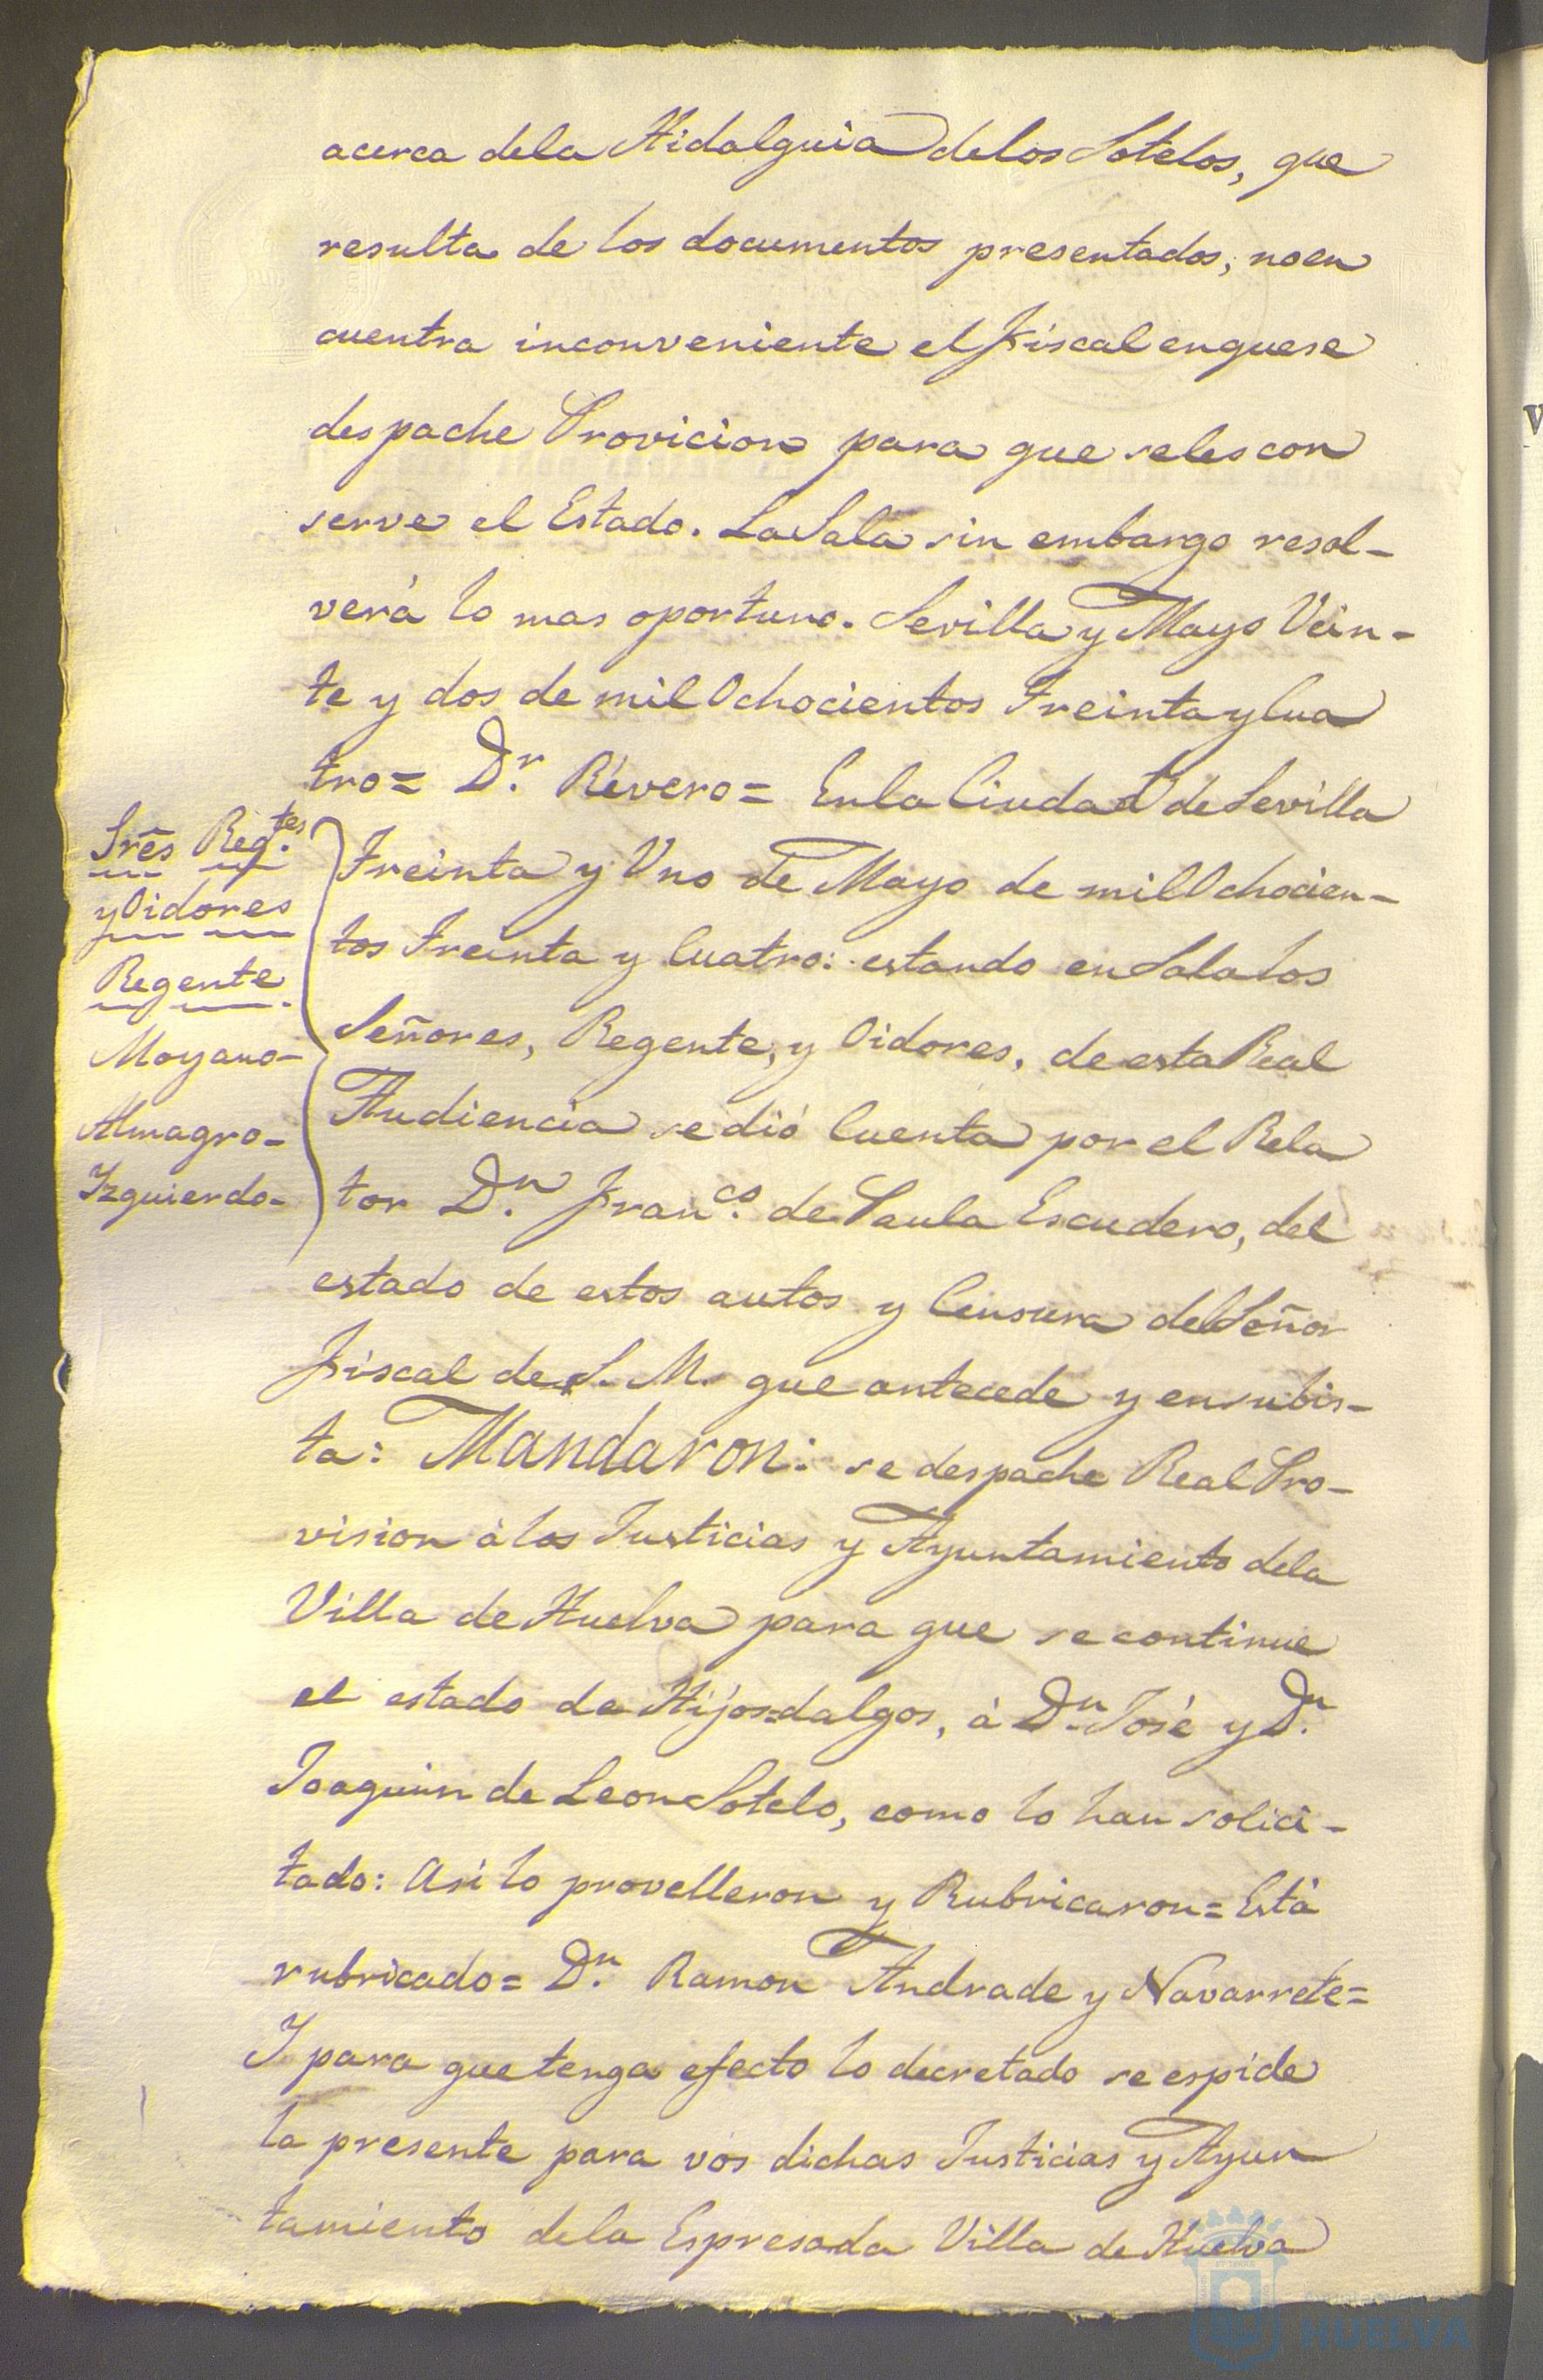 acerca dela Hidalguia delos Sotelos, que
resulta de los documentos presentados, noen
cuentra inconveniente el Fiscal enquese
despache Provicion para que selescon
serve el Estado. LaSala sin embargo resol-
verá lo mas oportuno. Sevilla y Mayo Vein-
te y dos de mil Ochocientos Treinta y Cua
tro = D.r Rivero = Enla Ciudad de Sevilla
Treinta y Uno de Mayo de mil Ochocien-
tos Treinta y Cuatro: estando enSala los
Señores, Regente, y Oidores, de esta Real
Audiencia se dió Cuenta por el Rela
tor D.n Fran.co de Paula Escudero, del
estado de estos autos y Censura delSeñor
Fiscal de S. M. que antecede y ensubis-
ta: Mandaron: se despache Real Pro-
vision á los Justicias y Ayuntamiento dela
Villa de Huelva para que se continue
el estado de Hijos=dalgos, á D.n José y D.n
Joaquin de Leon Sotelo, como lo han solici-
tado: Asi lo provelleron y Rubricaron = Está
rubricado = D.n Ramon Andrade y Navarrete =
Y para que tenga efecto lo decretado se espide
la presente para vos dichas Justicias y Ayun
tamiento dela Espresada Villa de Huelva
Srẽs Reg.tes
y Oidores
Regente.
Moyano-
Almagro-
Izquierdo-
HUELVA